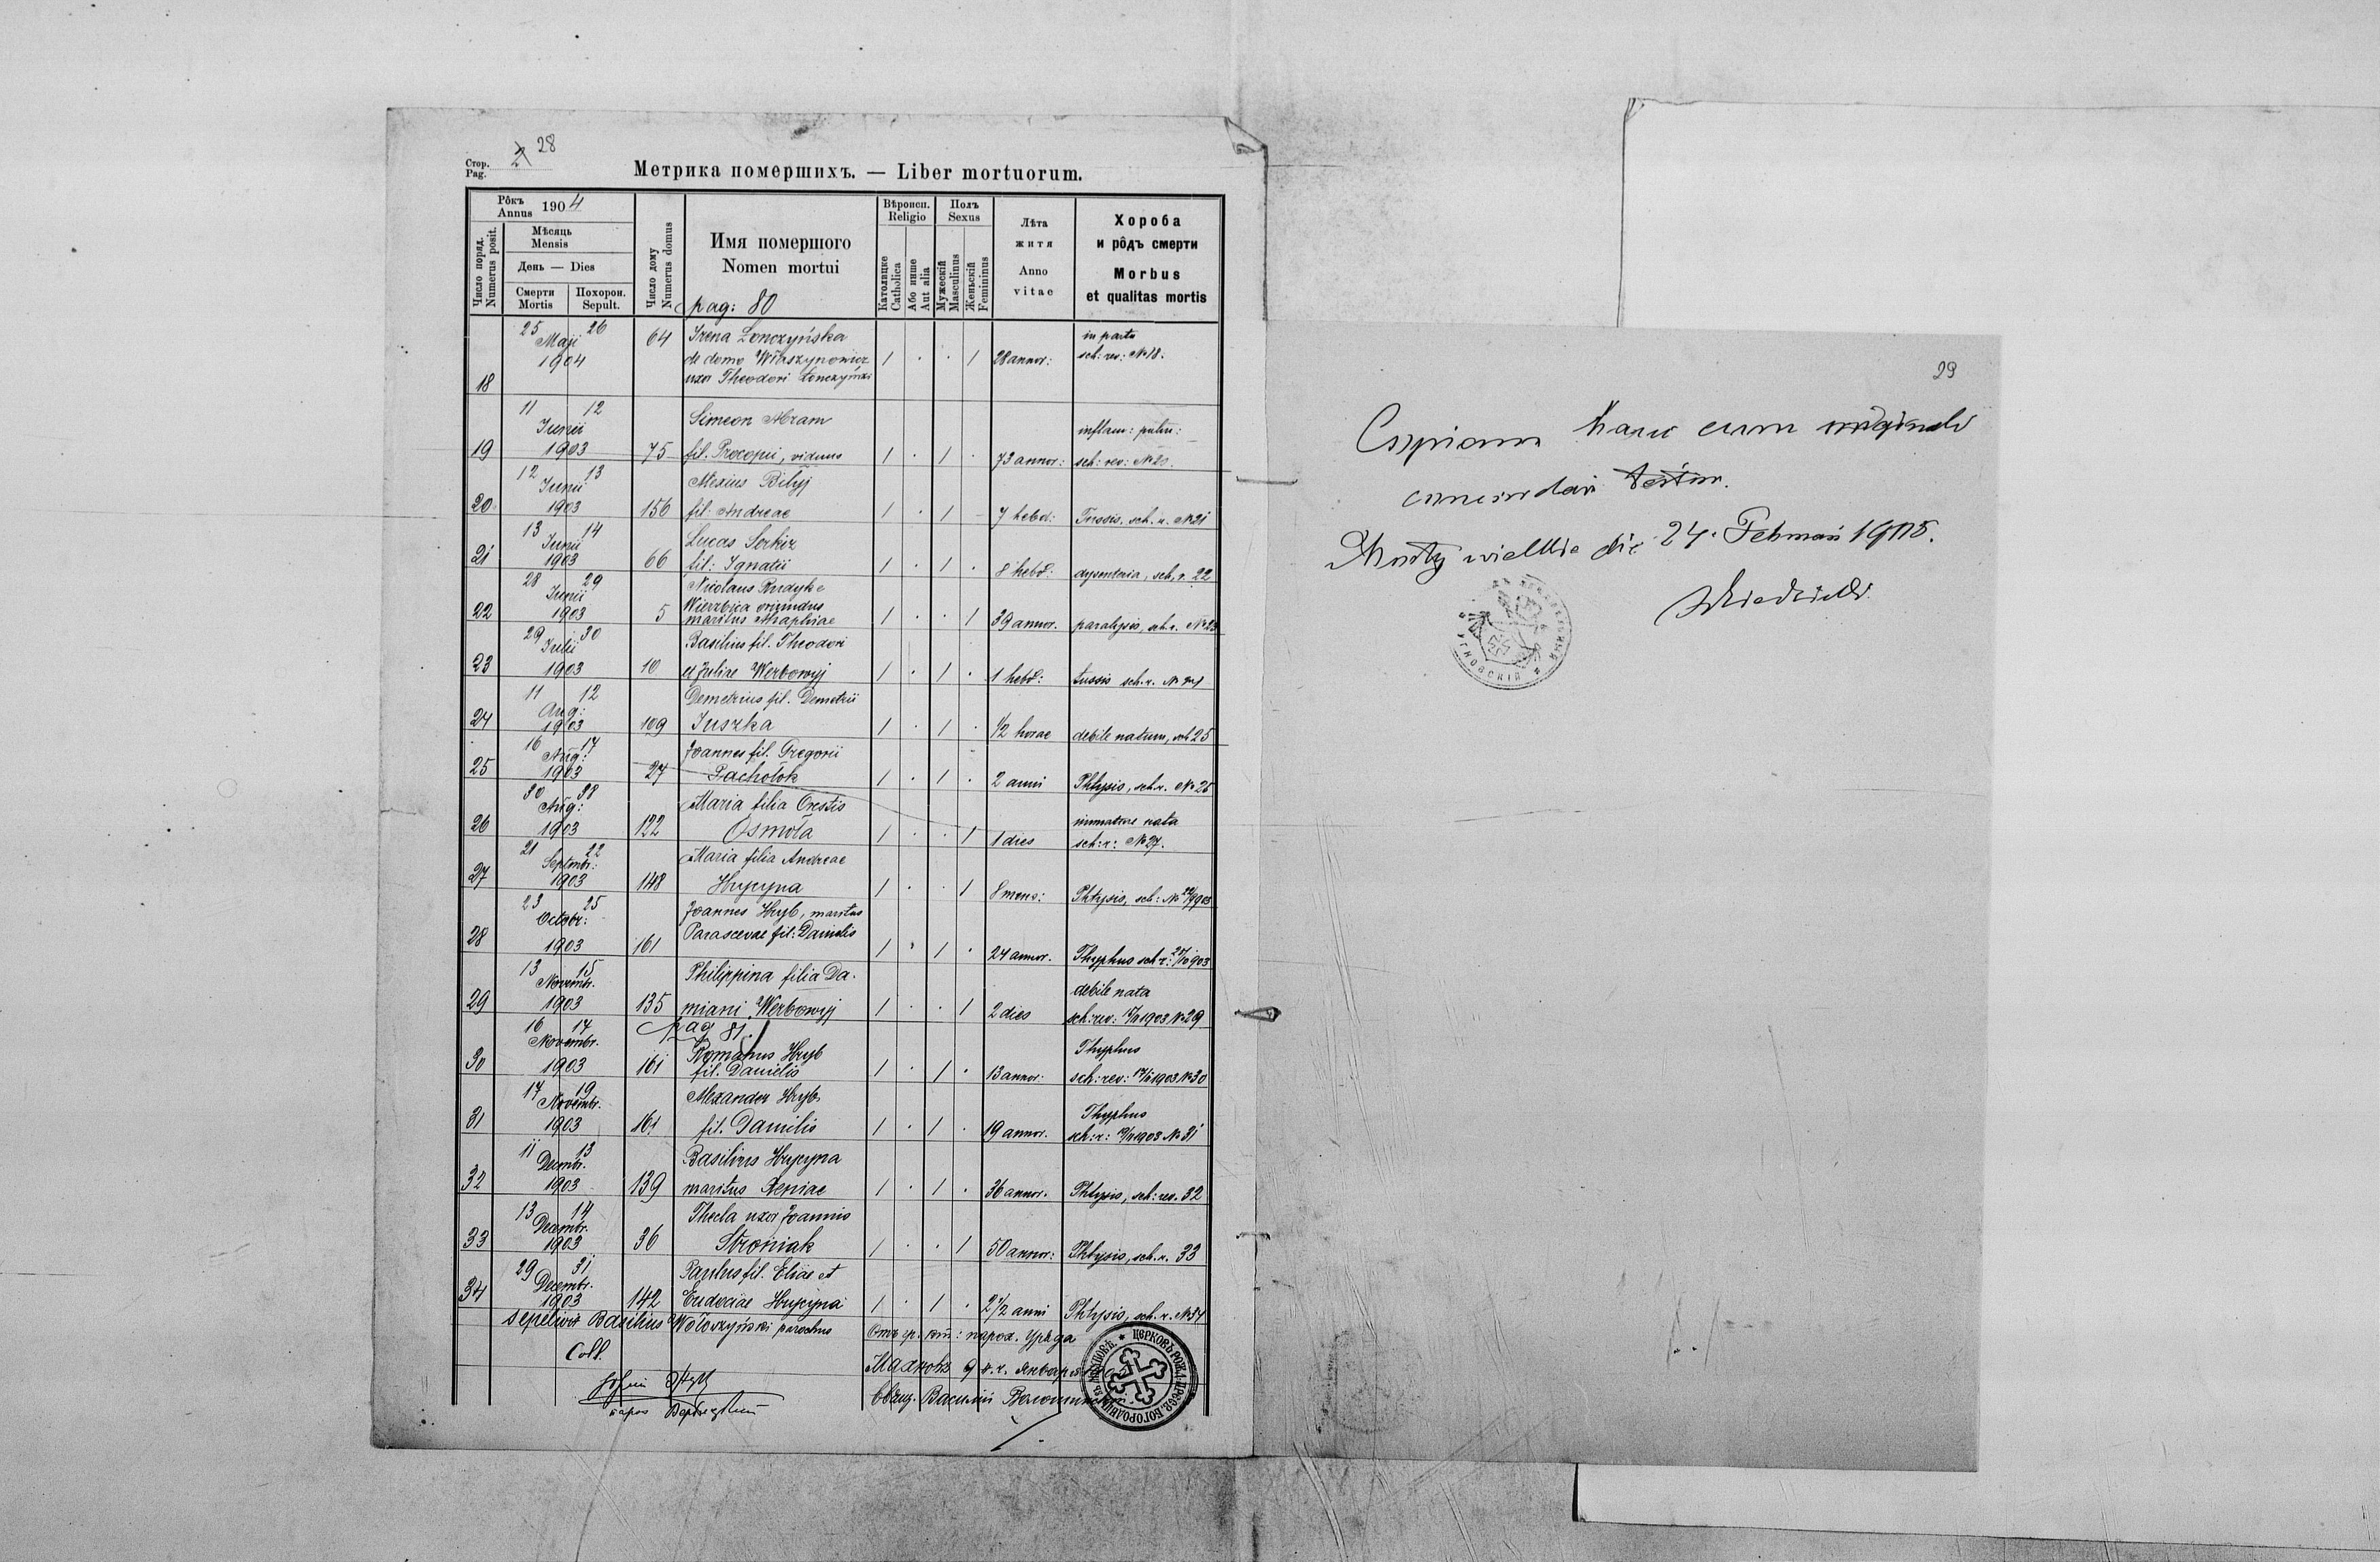 Стор.
Pag. 28
Метрика померших. — Liber mortuorum.
Рôкъ
Annus 1904
Мѣсяць
Mensis
День — Dies
Смерти
Mortis
Похорон.
Sepult.
Число поряд.
Numerus posit.
Число дому
Numerus domus
Имя помершого
Nomen mortui
pag: 80
Вѣроисп.
Religio
Католицке
Catholica
Або инше
Aut alia
Полъ
Sexus
Мужескій
Masculinus
Женьскій
Femininus
Лѣта
житя
Anno
vitae
Хороба
и рôдъ смерти
Morbus
et qualitas mortis
25 26 64 Irena Łonczyńska in partu
Maji de domo 1 . . 1 28 annor: sch: rev: № 18.
18 1904 uxor Theodori Łonczyński
11 12 Simeon Abram
Junii inflam: pulm:
19 1903 75 fil. Procopii, viduus 1 . 1 . 73 annor: sch: rev: № 20.
12 13 Alexius Bilyj
Junii
20 1903 156 fil. Andreae 1 . 1 7 hebd: Tussis, sch. r. № 21
13 14 Lucas Serkiz
Junii
21 1903 66 fil: Ignatii 1 . 1 . 8 hebd: dysenteria, sch. r. 22
28 29 Nicolaus Rudyk e
Junii Wierzbica oriundus
22 1903 5 maritus Maphiae 1 . . 1 39 annor. paralysis, sch. r. № 23
29 30 Basilius fil. Theodori
Julii
23 1903 10 et Juliae Werbowyj 1 . 1 . 1 hebd: tussis sch. r. № 24
11 12 Demetrius fil. Demetrii
Aug:
24 1903 109 Juszka 1 . 1 . 1/2 horae debile natum, sch 25
16 17 Joannes fil. Gregorii
Aug:
25 1903 27 Pachołok 1 . 1 . 2 anni Phtysis, sch. r. № 26
Maria filia Orestis
Aug: immature nata
26 1903 122 Osmoła 1 . . 1 1 dies sch: r: № 27.
21 22 Maria filia Andreae
Septembr:
27 1903 148 Hrycyna 1 . . 1 8 mens: Phtysis, sch: №
23 25 Joannes Hryb, maritus
Octobr: Parascevae fil: Danielis
28 1903 161 1 . 1 . 24 annor. Thyphus sch r:
13 15 Philippina filia Da-
Novembr. debile nata
29 1903 135 miani Werbowyj 1 . . 1 2 dies sch: rev: 1903 № 29
16 17 pag 81.
Novembr. Romanus Hryb Thyphus
30 1903 161 fil. Danielis 1 . 1 . 13 annor: sch: rev: 1903 № 30
17 19 Alexander Hryb
Novembr. Thyphus
31 1903 161 fil. Danielis 1 . 1 . 19 annor. sch: r: 1903 № 31
11 13 Basilius Hrycyna
Decembr.
32 1903 139 maritus Xeniae 1 . 1 . 36 annor. Phtysis, sch: rev. 32
13 14 Thecla uxor Joannis
Decembr.
33 1903 36 Stroniak 1 . . 1 50 annor: Phtysis, sch. r. 33
29 31 Paulus fil. Eliae et
Decembr.
34 1903 142 Eudociae Hrycyna 1 . 1 . 2 1/2 anni Phtysis, sch. r. № 34
sepelivit Basilius Wołoszyński parochus
Отъ гр. кат: парох. Уряда
Coll.
Махновъ 9 н. с. Января
Свящ. Василій Волошинскій
ЦЕРКОВЬ РОЖД. ПРЕСВ. БОГОРОДИЦЫ
29
Copiam hanc cum originali
concordare testor.
Mosty wielkie die 24. Februari 1905.
УГНОВСКІЙ